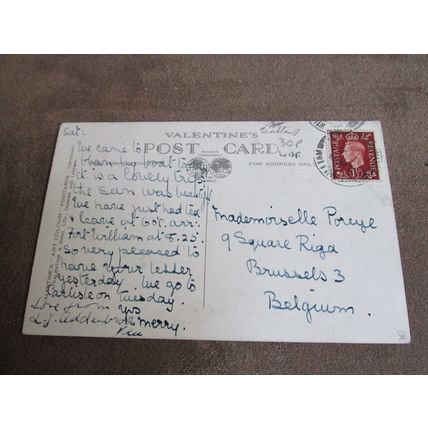 VALENTINE'S
POST CARD
FOR ADDRESS ONLY
Scotland
30P
POSTAGE REVENUE
1½D
Sat:
We came to
by boat to
it is a lovely trip
the sun was
We have just had tea
& leave at 6.05. arr:
Fort William at 8.25.
So very pleased to
have your letter
yesterday We go to
Carlisle on Tuesday.
Love from yrs
merry.
Mademoiselle Poreye
9 Square Riga
Brussels 3
Belgium.
VALENTINE'S "ART COLOUR" POSTCARDS